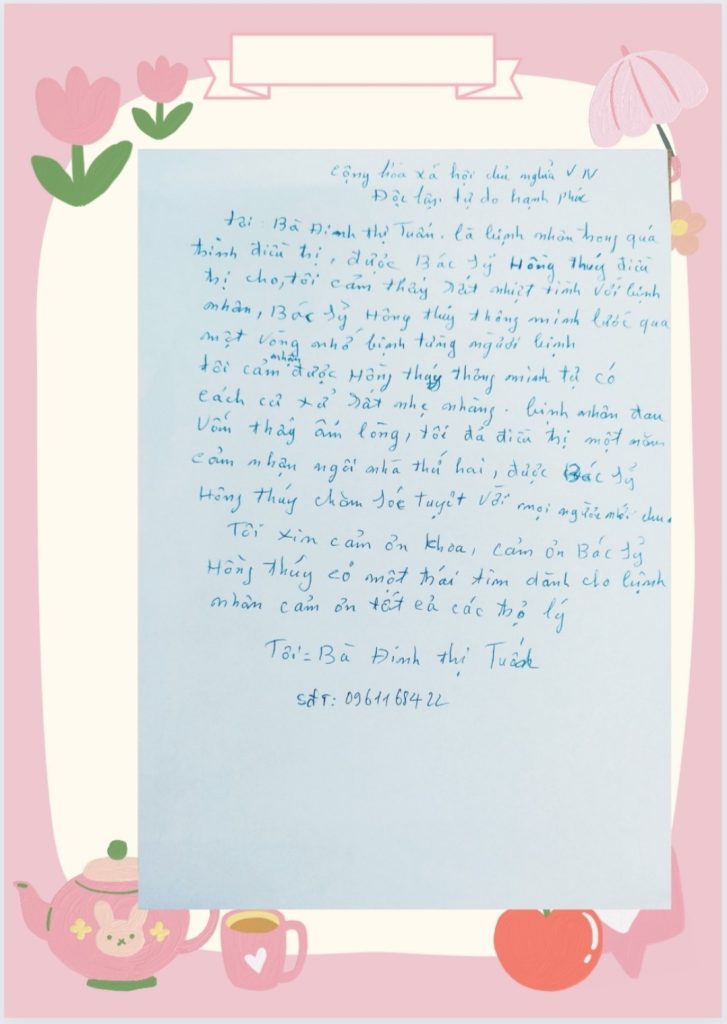 Cộng hòa xã hội chủ nghĩa VN
Độc lập tự do hạnh phúc
Tôi: Bà Đinh Thị Tuấn. là bệnh nhân trong quá
trình điều trị, được Bác sỹ Hồng Thúy điều
trị cho, tôi cảm thấy rất nhiệt tình với bệnh
nhân, Bác sỹ Hồng Thúy thông minh lướt qua
một vòng nhớ bệnh từng người bệnh
tôi cảm nhận được Hồng Thúy thông minh tự có
cách cư xử rất nhẹ nhàng. bệnh nhân đau
vẫn thấy ấm lòng, tôi đã điều trị một năm
cảm nhận ngôi nhà thứ hai, được Bác sỹ
Hồng Thúy chăm sóc tuyệt vời mọi người nói
Tôi xin cảm ơn khoa, cảm ơn Bác sỹ
Hồng Thúy có một trái tim dành cho bệnh
nhân cảm ơn tất cả các trợ lý
Tôi = Bà Đinh Thị Tuấn
SĐT: 0961168422